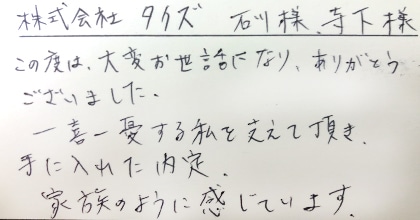 株式会社 タイズ 石川様、寺下様
この度は、大変お世話になり、ありがとう
ございました。
一喜一憂する私を支えて頂き、
手に入れた内定。
家族のように感じています。